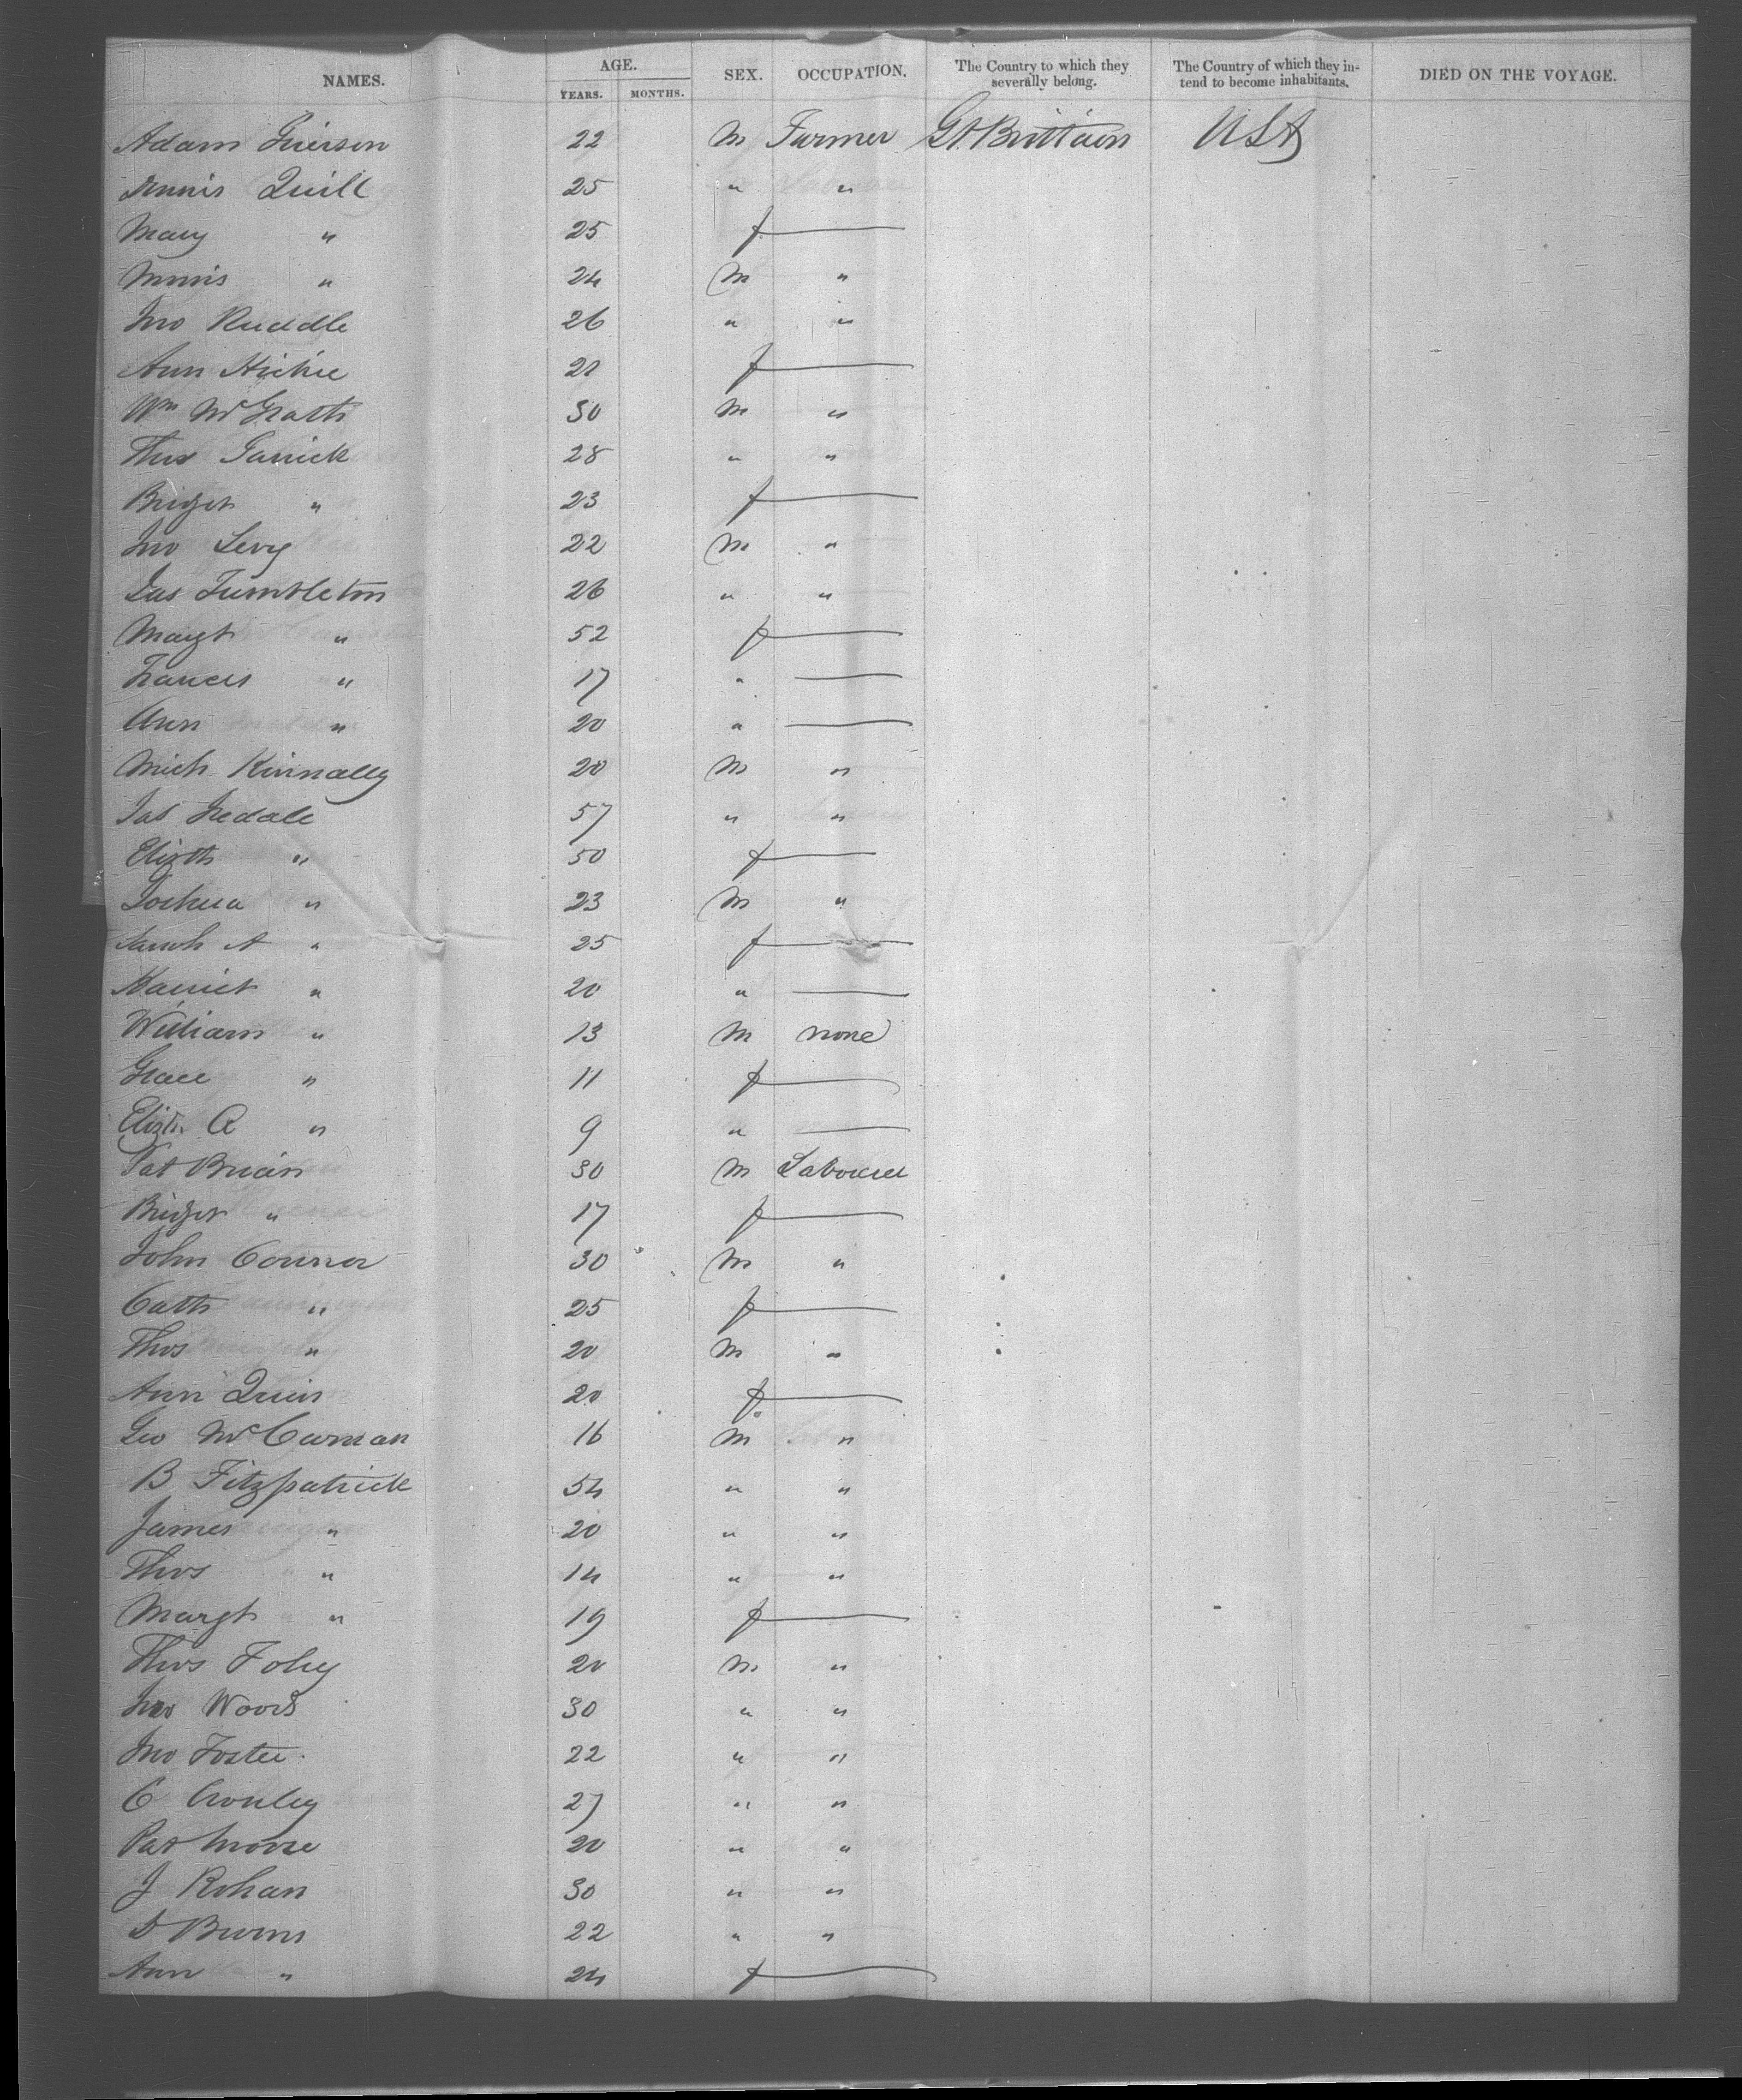 NAMES. AGE. YEARS. MONTHS. SEX. OCCUPATION. The Country to which they severally belong. The Country of which they intend to become inhabitants. DIED ON THE VOYAGE.
Adam Grierson 22 M Farmer Gt. Brittain USA
Dennis Quill 25 " "
Mary " 25 f —
" 24 M "
Jno Ruddle 26 " "
Ann Hickie 21 f —
Wm McGrath 30 M "
Thos Garrick 28 " "
Bridget " 23 f —
Jno Levy 22 M "
Jas Tumbleton 26 " "
Margt " 52 f —
Frances " 17 " —
Ann " 20 " —
Mich Kinnally 20 M "
Jas Iredale 57 " "
Elizth " 50 f —
Joshua " 23 M "
Sarah A " 25 f —
Harriet " 20 " —
William " 13 M none
Grace " 11 f —
Elizth A " 9 " —
Pat Brian 30 M Labourer
Bridget " 17 f —
John Connor 30 M "
Cath " 25 f —
Thos " 20 M "
Ann Quin 20 f —
Geo 16 M "
B Fitzpatrick 54 " "
James " 20 " "
Thos " 14 " "
Margt " 19 f —
Thos Foley 20 M "
Jno Woods 30 " "
Jno Foster 22 " "
C Cronley 27 " "
Pat Moore 20 " "
J Rohan 30 " "
D Burns 22 " "
Ann " 24 f —